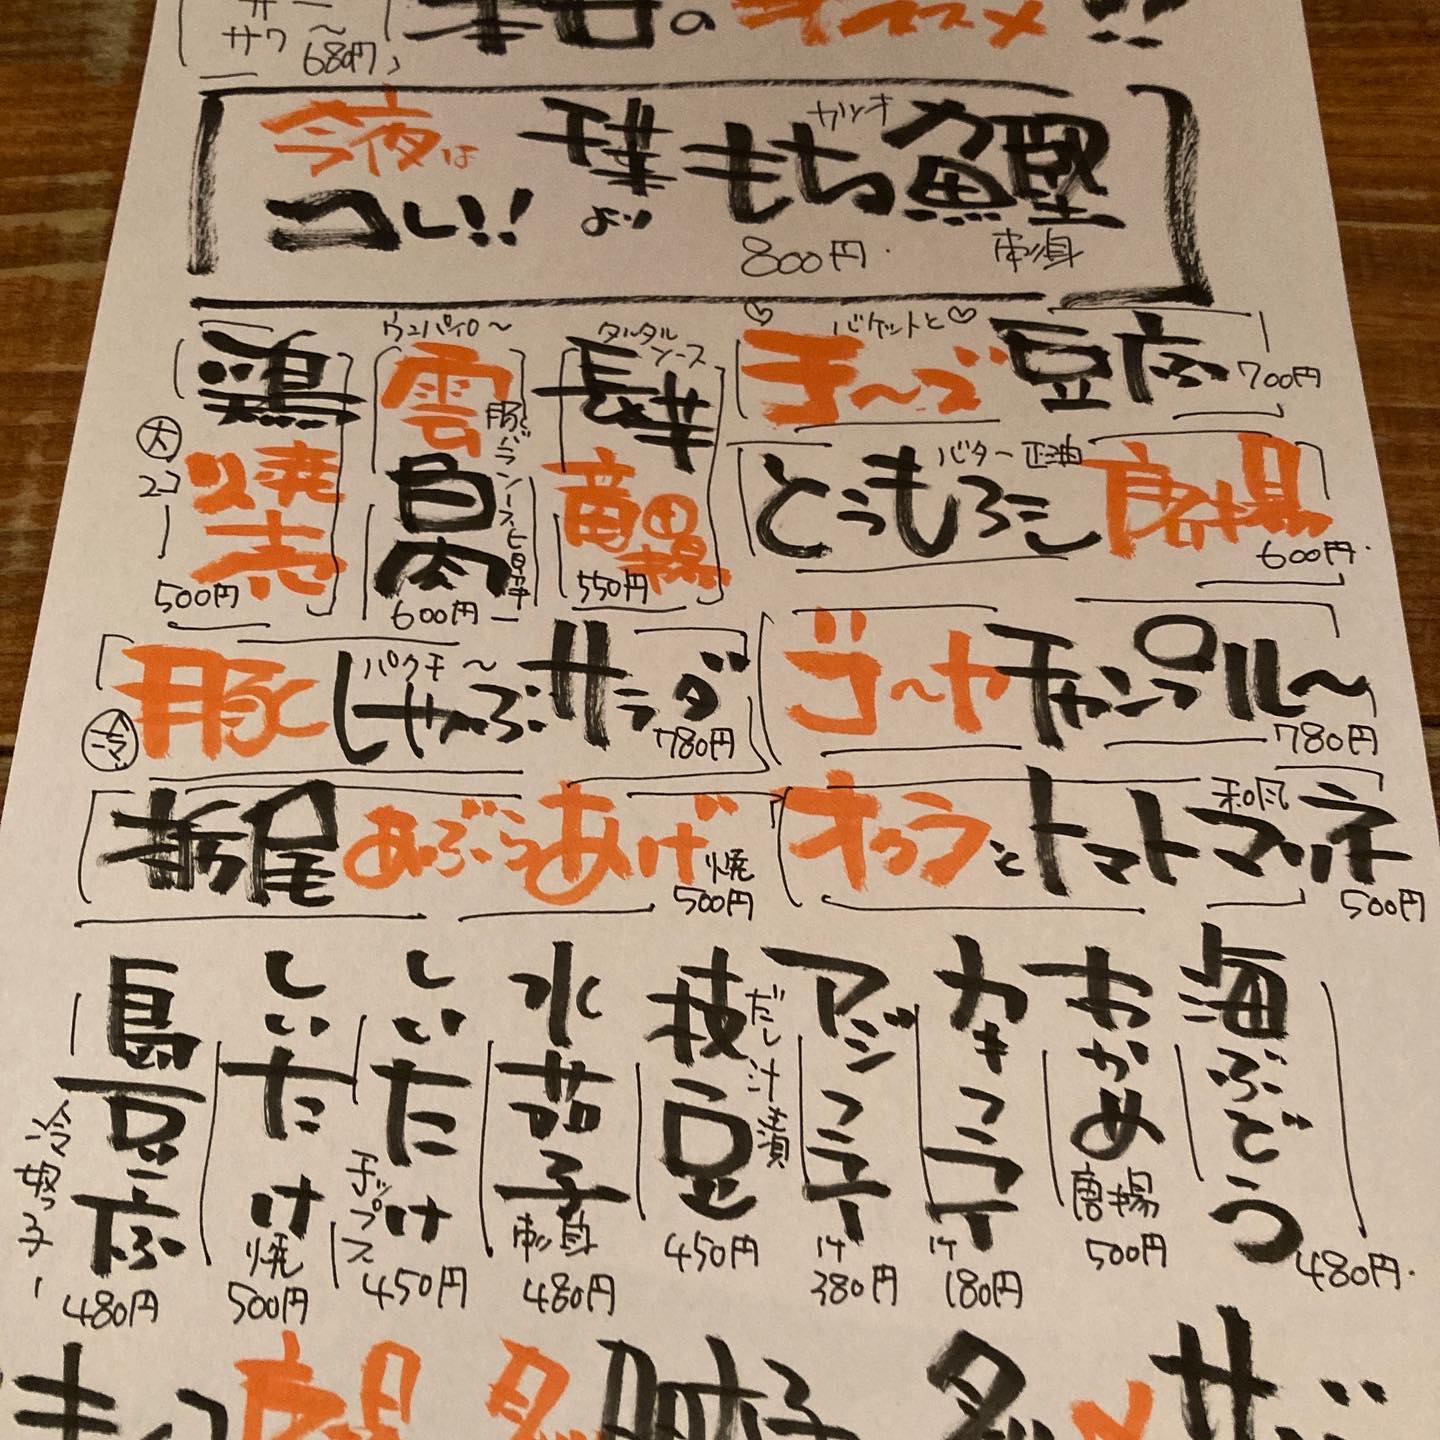 サワー
680円
本日のオススメ!!
今夜は
コレ!!
千葉
より
もちカツオ
カツオ
鰹
刺身
800円
鶏焼売
大
2コ
500円
ウンパイロ〜
雲白肉
豚バラ
600円
タルタル
ソース
長芋竜田揚
550円
バケットと
チーズ豆腐
700円
バター正油
とうもろこし唐揚
600円
冷
パクチ〜
豚しゃぶサラダ
780円
ゴーヤチャンプル〜
780円
栃尾あぶらあげ
焼
500円
オクラとトマト和風マリネ
500円
海ぶどう
480円
おかめ
唐揚
500円
カキフライ
1ケ
180円
アジフライ
1ケ
380円
枝豆
だし汁漬
450円
水茄子
刺身
480円
しいたけ
チップス
450円
しいたけ
焼
500円
島豆腐
冷奴
480円